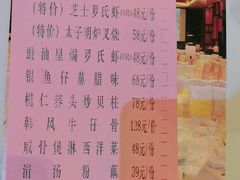 (特价)芝士罗氏虾(8只)48元/份
(特价)太子明炉叉烧58元/份
豉油皇焗罗氏虾(8只)48元/份
银鱼仔蒸腊味68元/份
榄仁荞头炒贝柱78元/份
韩风牛仔骨128元/份
咸骨煲淋西洋菜48元/份
清汤粉藕39元/份